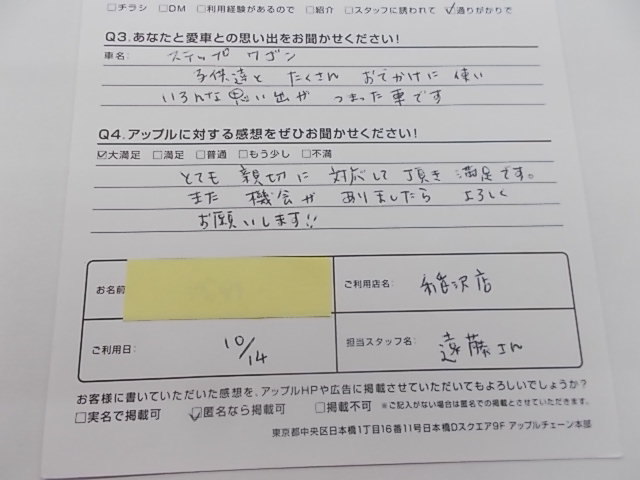 □チラシ □DM □利用経験があるので □紹介 □スタッフに誘われて ☑通りがかりで
Q3.あなたと愛車との思い出をお聞かせください!
車名: ステップ ワゴン
子供達と たくさん おでかけに 使い
いろんな 思い出が つまった 車です
Q4.アップルに対する感想をぜひお聞かせください!
☑大満足 □満足 □普通 □もう少し □不満
とても 親切に 対応して 頂き 満足です。
また 機会が ありましたら よろしく
お願いします!!
お名前
ご利用店名: 稲沢店
ご利用日: 10/14
担当スタッフ名: 遠藤さん
お客様に書いていただいた感想を、アップルHPや広告に掲載させていただいてもよろしいでしょうか?
□実名で掲載可 ☑匿名なら掲載可 □掲載不可 ※ご記入がない場合は匿名での掲載とさせていただきます。
東京都中央区日本橋1丁目16番11号日本橋Dスクエア9F アップルチェーン本部